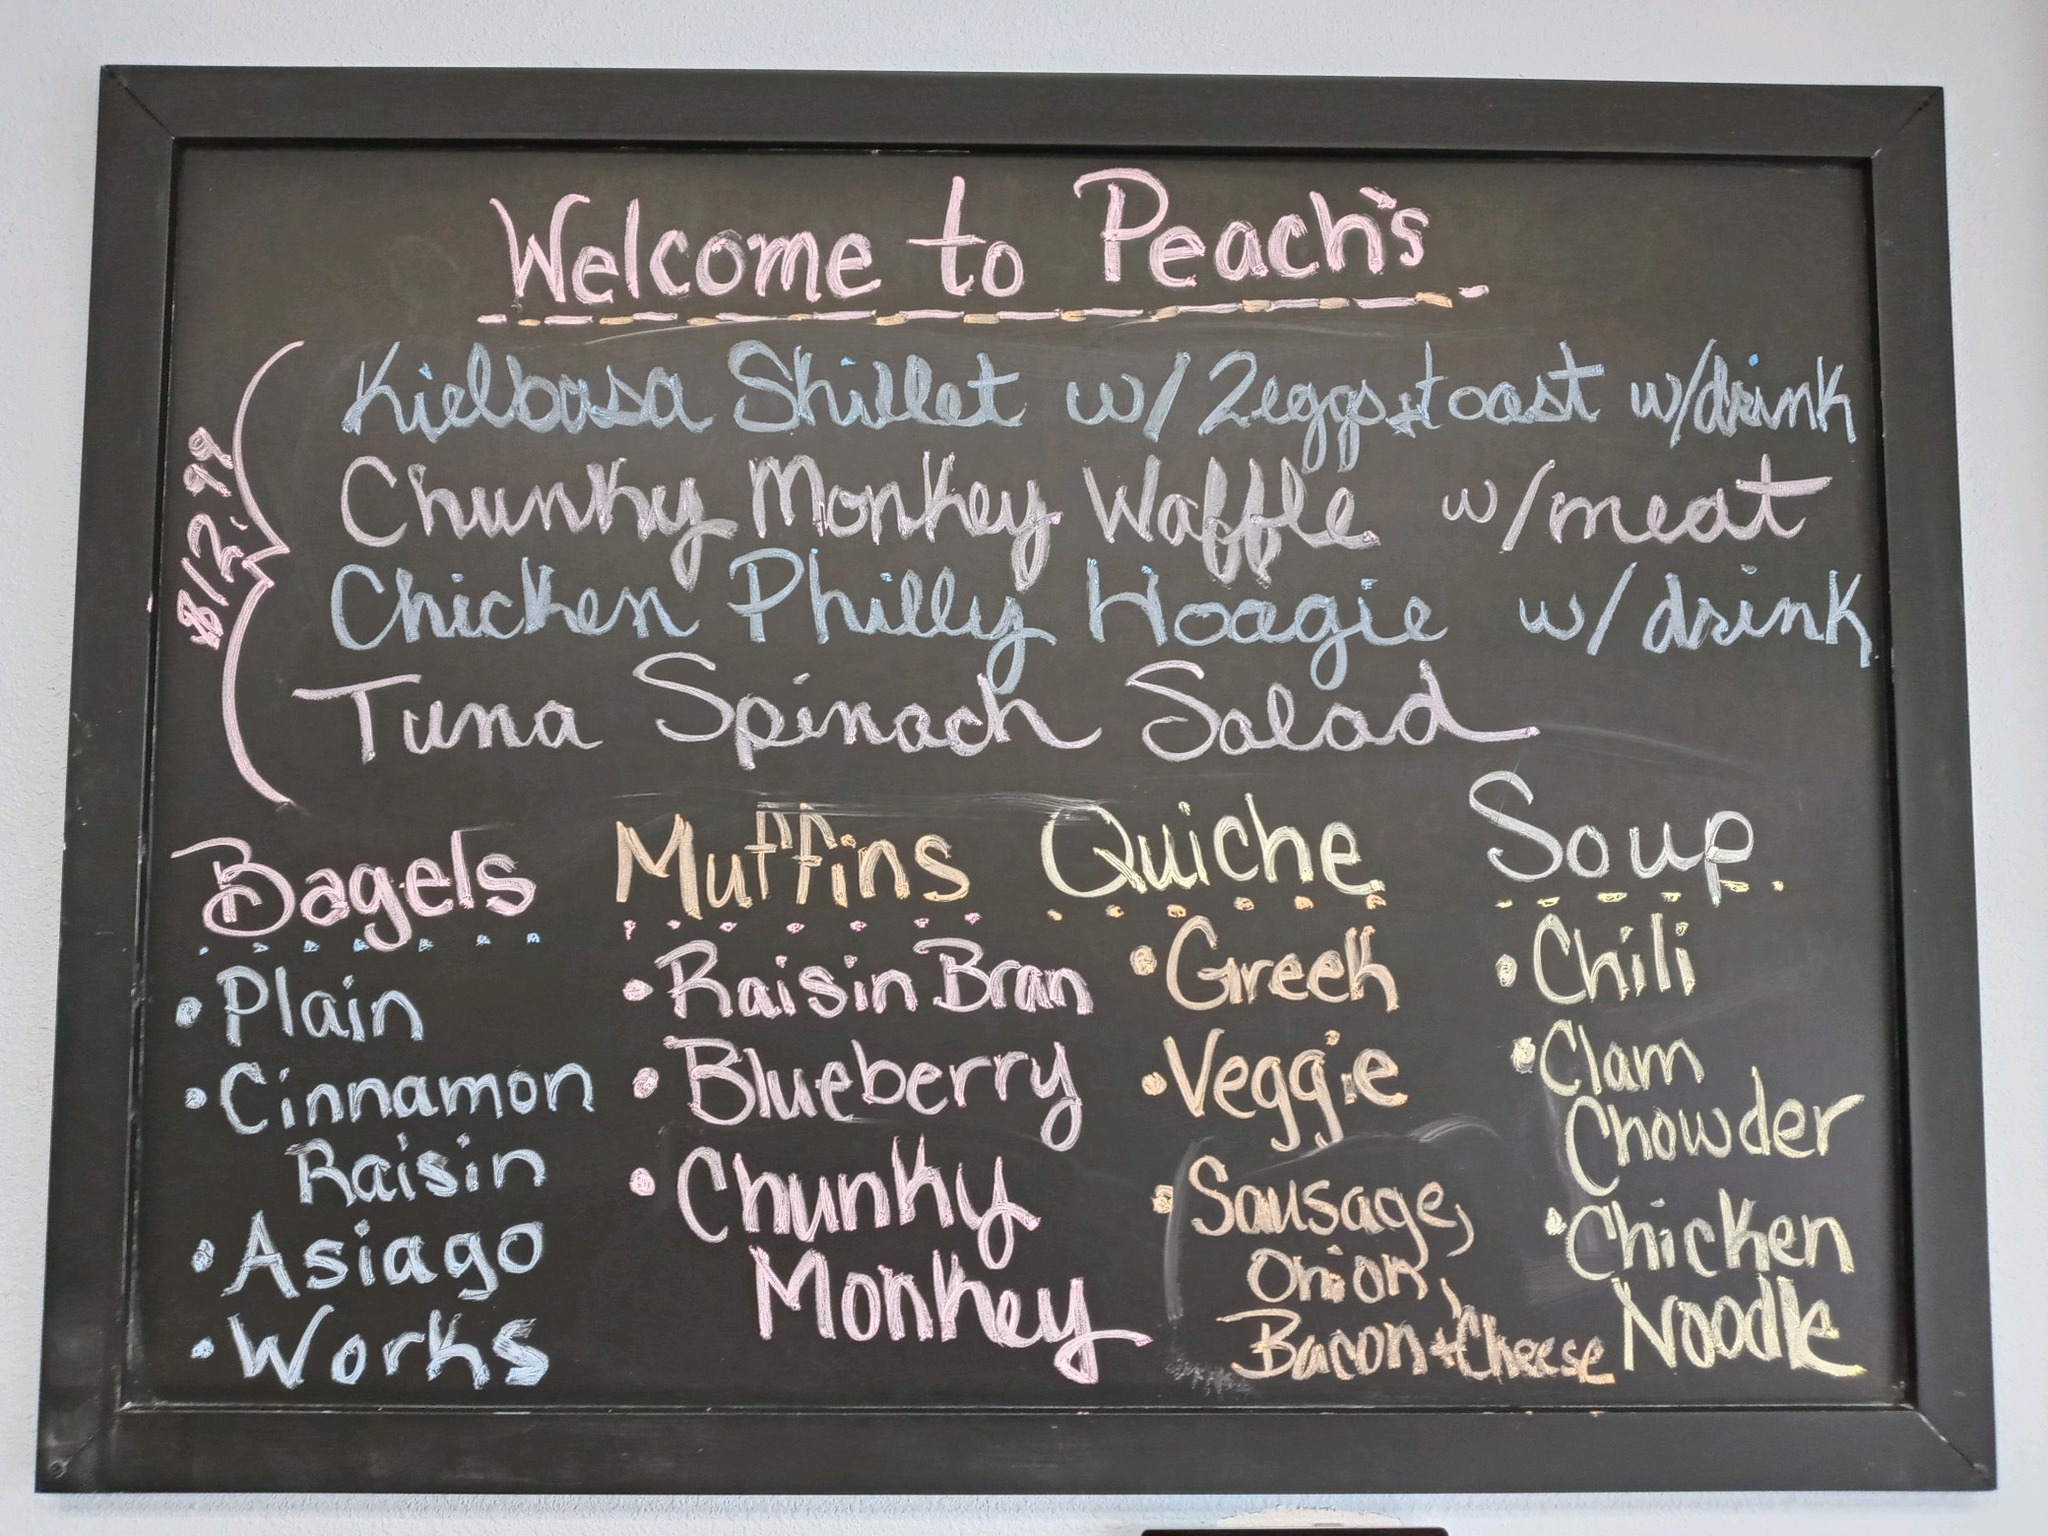 Welcome to Peach's
$12.99
Kielbasa Skillet w/ 2 eggs + toast w/drink
Chunky Monkey Waffle w/meat
Chicken Philly Hoagie w/ drink
Tuna Spinach Salad
Bagels
• Plain
• Cinnamon
Raisin
• Asiago
• Works
Muffins
• Raisin Bran
• Blueberry
• Chunky
Monkey
Quiche
• Greek
• Veggie
• Sausage,
Onion,
Bacon + Cheese
Soup
• Chili
• Clam
Chowder
• Chicken
Noodle